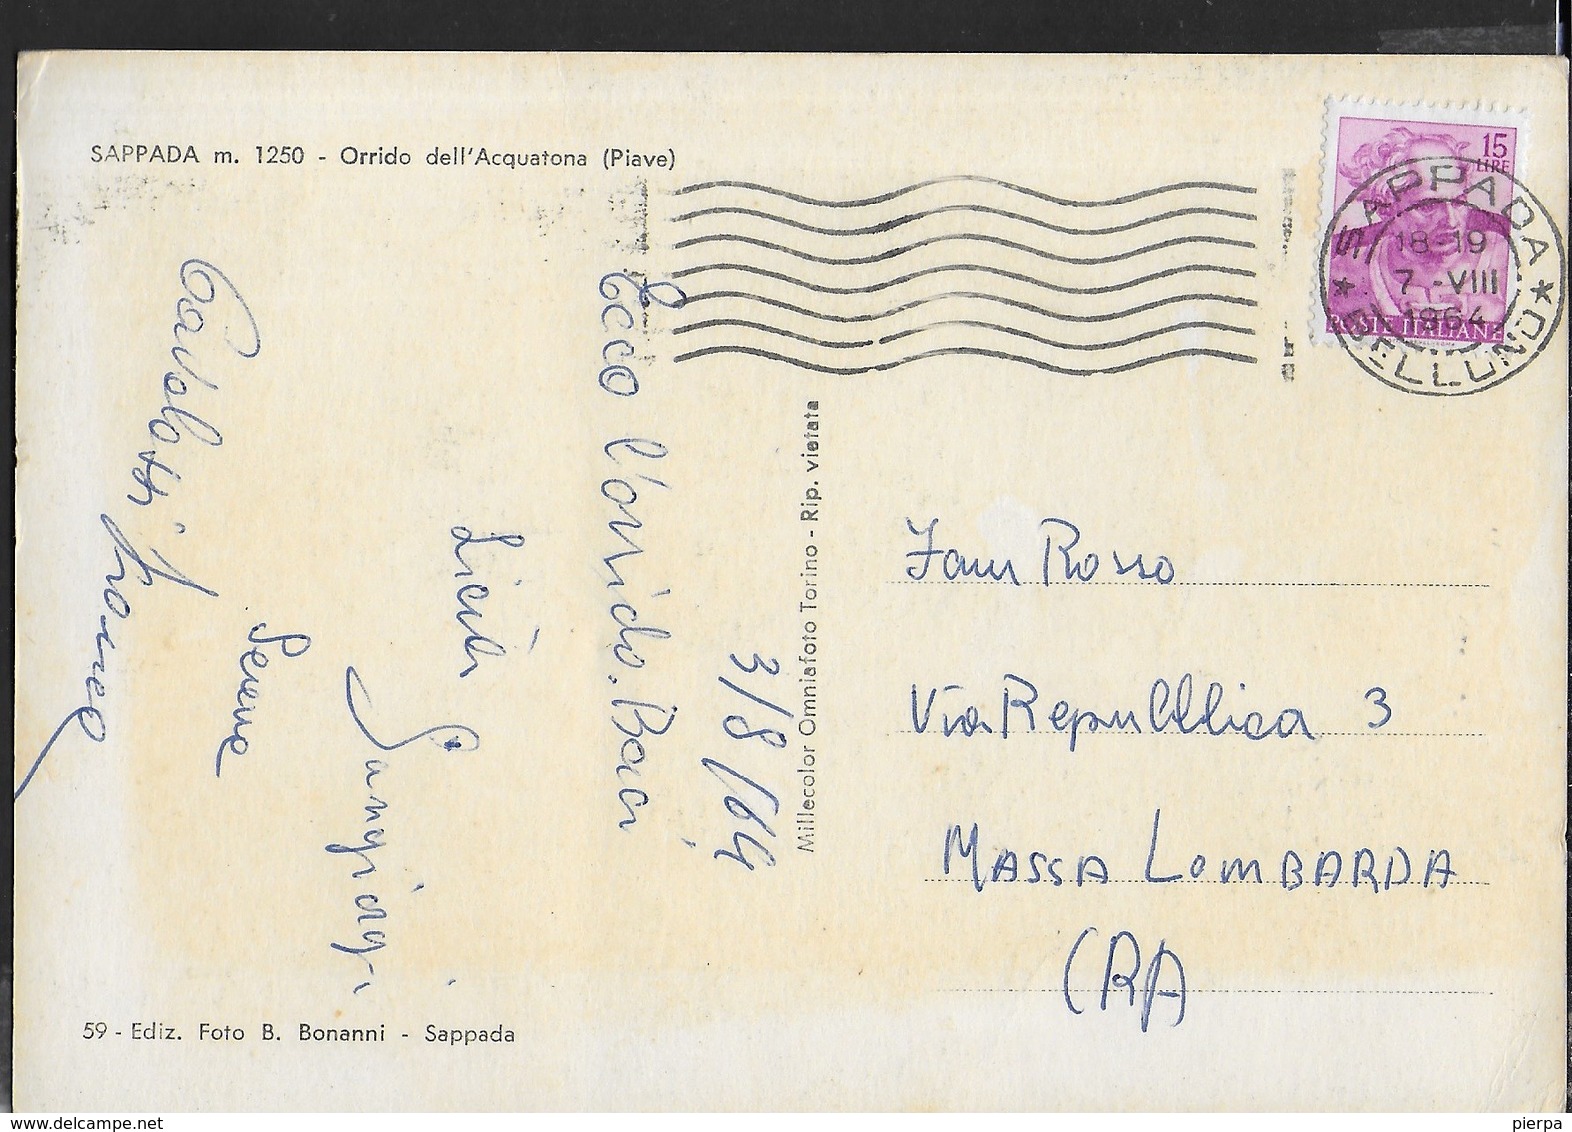 SAPPADA m. 1250 - Orrido dell'Acquatona (Piave)
15
LIRE
POSTE ITALIANE
SAPPADA
18-19
7-VIII
1964
* BELLUNO *
3/8/64
Ecco l'orrido. Baci
Sangiorgi
Millecolor Omniafoto Torino - Rip. vietata
Rosso
Via Repubblica 3
MASSA LOMBARDA
(RA
59 - Ediz. Foto B. Bonanni - Sappada
pierpa